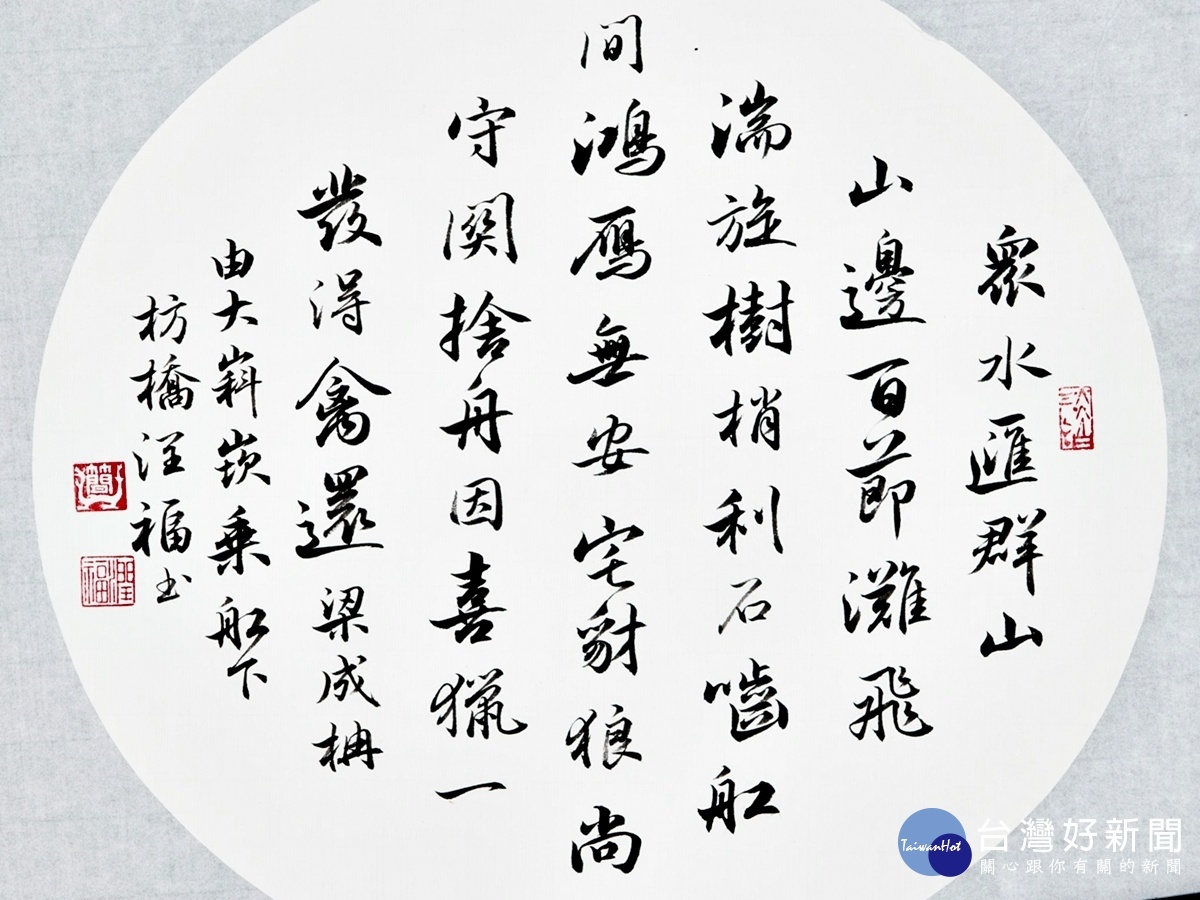 眾水匯群山
山邊百節灘飛
湍旋樹梢利石嚙舡
間鴻雁無安宅豺狼尚
守關捨舟因喜獵一
發得禽還 梁成枏
由大嵙崁乘舡下
枋橋 潤福书
簡
潤福
台灣好新聞
TaiwanHot
關心跟你有關的新聞